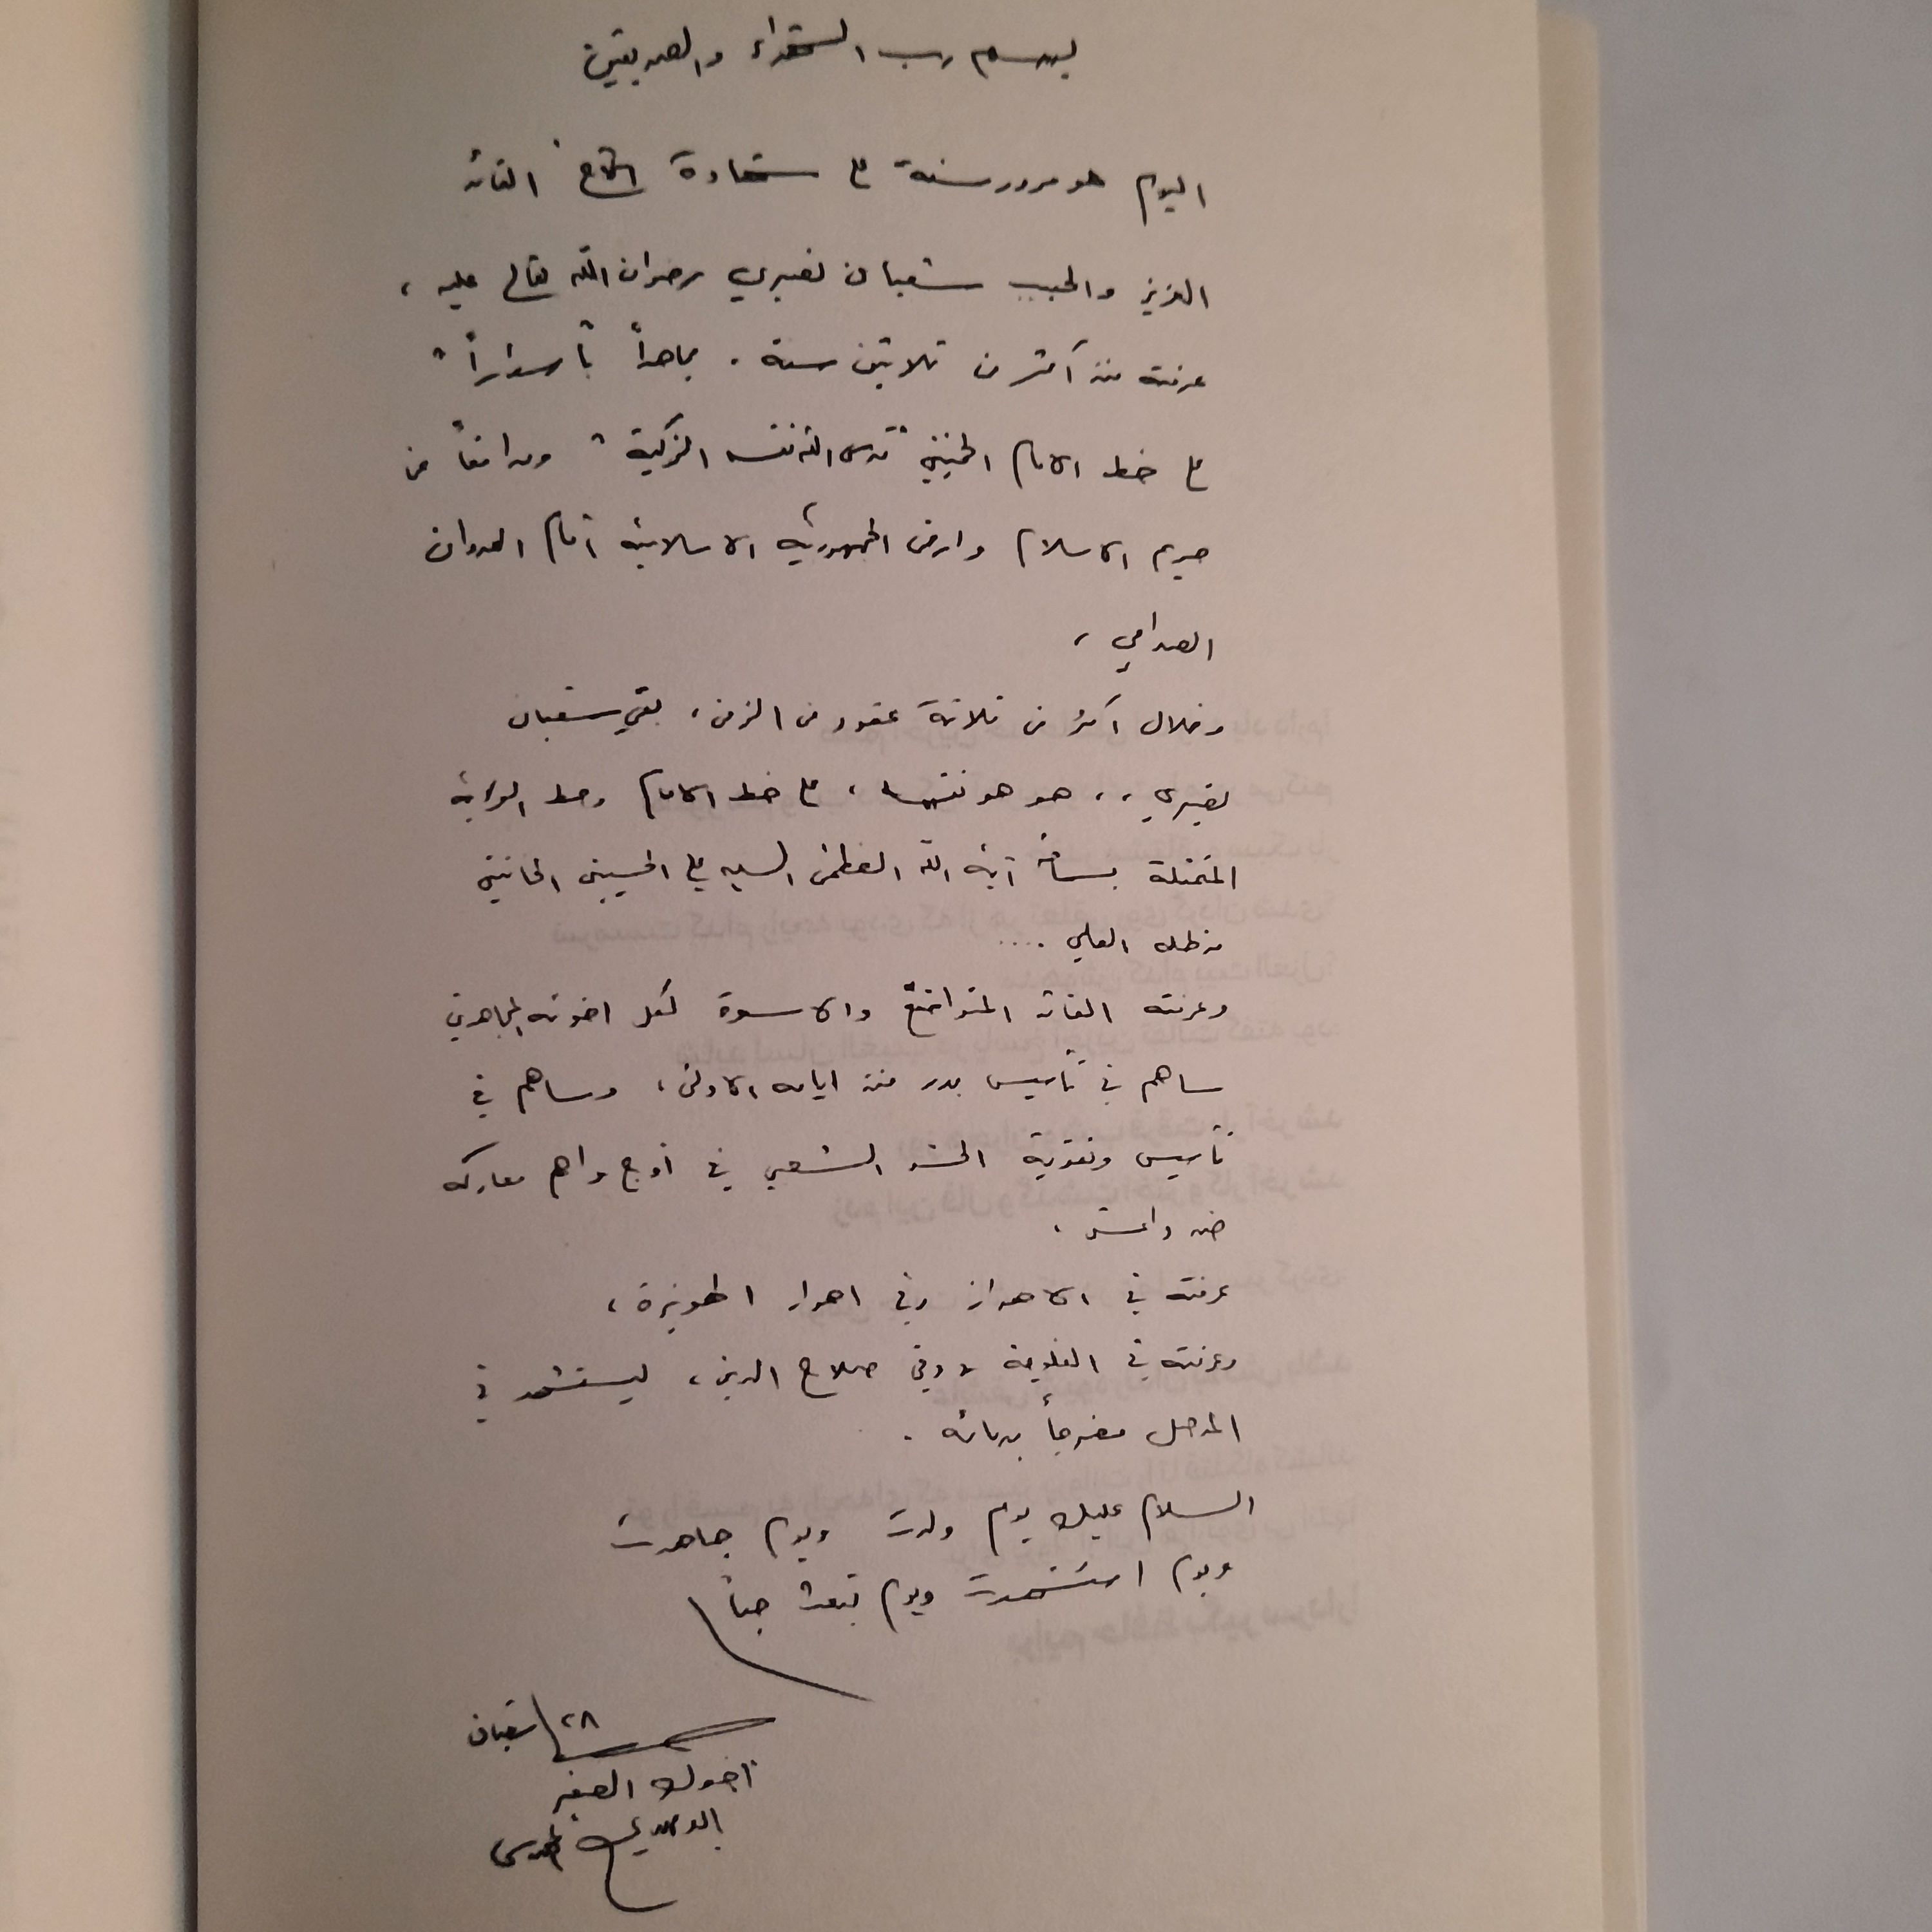 بسم رب الشهداء والصديقين
اليوم هو مرور سنة على شهادة الحاج القائد
العزيز والحبيب شعبان نصيري رضوان الله تعالى عليه ،
عرفته منذ أكثر من ثلاثين سنة . مجاهداً
على خط الامام الخميني "قدس الله نفسه الزكية" ومدافعاً عن
حريم الاسلام وارض الجمهورية الاسلامية أمام العدوان
الصدامي ،
وخلال أكثر من ثلاثة عقود من الزمن ، بقي شعبان
نصيري ، ، هو هو نفسه ، على خط الامام وخط الولاية
المتمثلة بسماحة آية الله العظمى السيد علي الحسيني الخامنئي
مد ظله العالي ....
وعرفته القائد المتواضع والاسوة لكل اخوته المجاهدين
ساهم في تأسيس بدر منذ ايامه الاولى ، وساهم في
تأسيس وتقوية الحشد الشعبي في أوج واهم معاركه
ضد داعش .
عرفته في الاهواز وفي اهوار الهويزة ،
وعرفته في الفلوجة ، وفي صلاح الدين ، ليستشهد في
الموصل مضرجاً بدمائه .
السلام عليك يوم ولدت ويوم جاهدت
ويوم استشهدت ويوم تبعث حياً
٢٨/ شعبان
اخوك الصغير
ابو مهدي المهندس